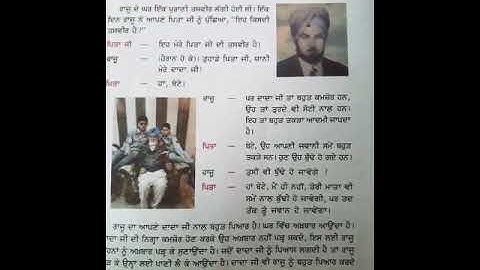 ਰਾਜੂ ਦੇ ਘਰ ਇੱਕ ਪੁਰਾਣੀ ਤਸਵੀਰ ਲੱਗੀ ਹੋਈ ਸੀ। ਇੱਕ
ਦਿਨ ਰਾਜੂ ਨੇ ਆਪਣੇ ਪਿਤਾ ਜੀ ਨੂੰ ਪੁੱਛਿਆ, "ਇਹ ਕਿਸਦੀ
ਤਸਵੀਰ ਹੈ?"
ਪਿਤਾ ਜੀ — ਇਹ ਮੇਰੇ ਪਿਤਾ ਜੀ ਦੀ ਤਸਵੀਰ ਹੈ।
ਰਾਜੂ — (ਹੈਰਾਨ ਹੋ ਕੇ)। ਤੁਹਾਡੇ ਪਿਤਾ ਜੀ, ਯਾਨੀ
ਮੇਰੇ ਦਾਦਾ ਜੀ!
ਪਿਤਾ ਜੀ — ਹਾਂ, ਬੇਟੇ।
ਰਾਜੂ — ਪਰ ਦਾਦਾ ਜੀ ਤਾਂ ਬਹੁਤ ਕਮਜ਼ੋਰ ਹਨ,
ਉਹ ਤਾਂ ਤੁਰਦੇ ਵੀ ਸੋਟੀ ਨਾਲ ਹਨ।
ਇਹ ਤਾਂ ਬਹੁਤ ਤਕੜਾ ਆਦਮੀ ਜਾਪਦਾ
ਹੈ।
ਪਿਤਾ — ਬੇਟੇ, ਉਹ ਆਪਣੀ ਜਵਾਨੀ ਸਮੇਂ ਬਹੁਤ
ਤਕੜੇ ਸਨ। ਹੁਣ ਉਹ ਬੁੱਢੇ ਹੋ ਗਏ ਹਨ।
ਰਾਜੂ — ਤੁਸੀਂ ਵੀ ਬੁੱਢੇ ਹੋ ਜਾਵੋਗੇ ?
ਪਿਤਾ — ਹਾਂ ਬੇਟੇ, ਮੈਂ ਹੀ ਨਹੀਂ, ਤੇਰੀ ਮਾਤਾ ਵੀ
ਸਮੇਂ ਨਾਲ ਬੁੱਢੀ ਹੋ ਜਾਵੇਗੀ, ਪਰ ਤਦ
ਤੱਕ ਤੂੰ ਜਵਾਨ ਹੋ ਜਾਵੇਂਗਾ।
ਰਾਜੂ ਦਾ ਆਪਣੇ ਦਾਦਾ ਜੀ ਨਾਲ ਬਹੁਤ ਪਿਆਰ ਹੈ। ਘਰ ਵਿੱਚ ਅਖ਼ਬਾਰ ਆਉਂਦਾ ਹੈ।
ਦਾ ਜੀ ਦੀ ਨਿਗ੍ਹਾ ਕਮਜ਼ੋਰ ਹੋਣ ਕਰਕੇ ਉਹ ਅਖ਼ਬਾਰ ਨਹੀਂ ਪੜ੍ਹ ਸਕਦੇ, ਇਸ ਲਈ ਰਾਜੂ
ਹਨਾਂ ਨੂੰ ਅਖ਼ਬਾਰ ਪੜ੍ਹ ਕੇ ਸੁਣਾਉਂਦਾ ਹੈ। ਜਦੋਂ ਦਾਦਾ ਜੀ ਨੂੰ ਪਿਆਸ ਲਗਦੀ ਹੈ ਤਾਂ ਰਾਜੂ
ਕੇ ਉਨ੍ਹਾਂ ਲਈ ਪਾਣੀ ਲੈ ਕੇ ਆਉਂਦਾ ਹੈ। ਦਾਦਾ ਜੀ ਵੀ ਰਾਜੂ ਨੂੰ ਬਹੁਤ ਪਿਆਰ ਕਰਦੇ